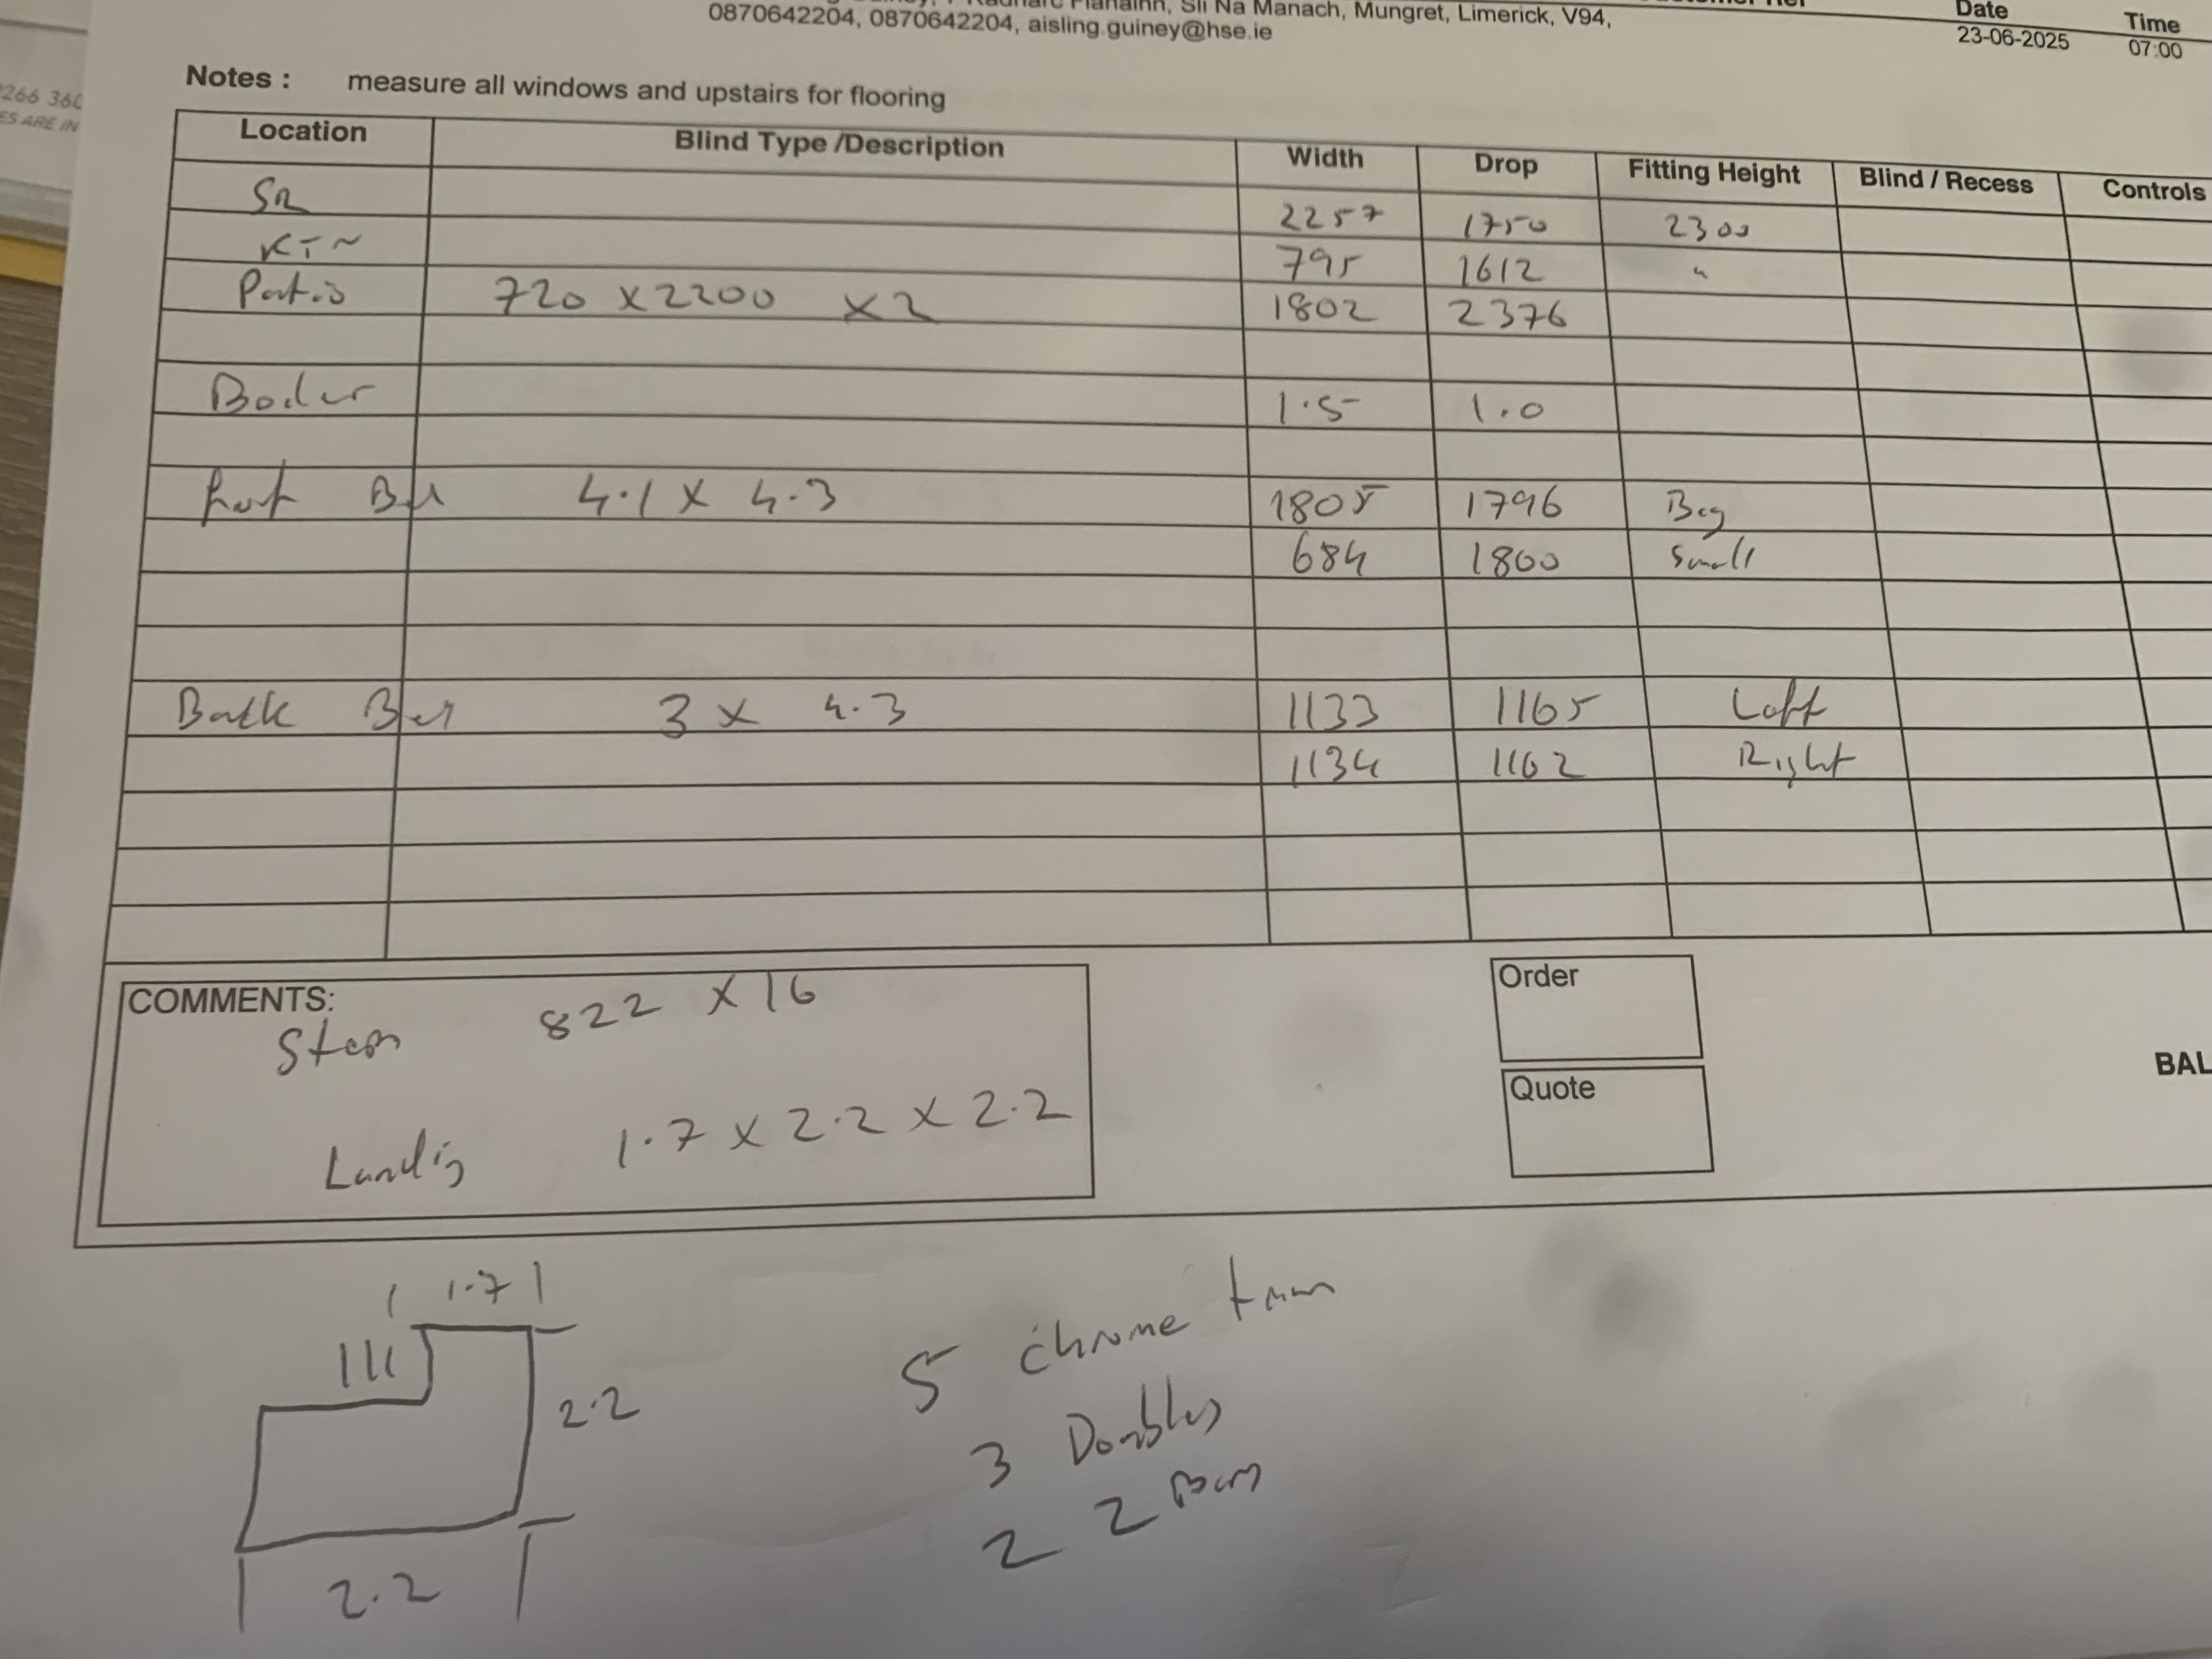 Flanainn, Sli Na Manach, Mungret, Limerick, V94,
0870642204, 0870642204, aisling.guiney@hse.ie
Date Time
23-06-2025 07:00
266 360
ES ARE IN
Notes : measure all windows and upstairs for flooring
Location Blind Type /Description Width Drop Fitting Height Blind / Recess Controls
SR 2257 1750 2300
KTN 795 1612 "
Patio 720 x 2200 x2 1802 2376
Boiler 1.5 1.0
Front Bed 4.1 x 4.3 1805 1796 Big
684 1800 Small
Back Bed 3 x 4.3 1133 1165 Left
1134 1162 Right
COMMENTS:
822 x 16
Landing 1.7 x 2.2 x 2.2
Order
Quote
BAL
1.7
2.2
2.2
5 chrome
3 Doubles
2 2